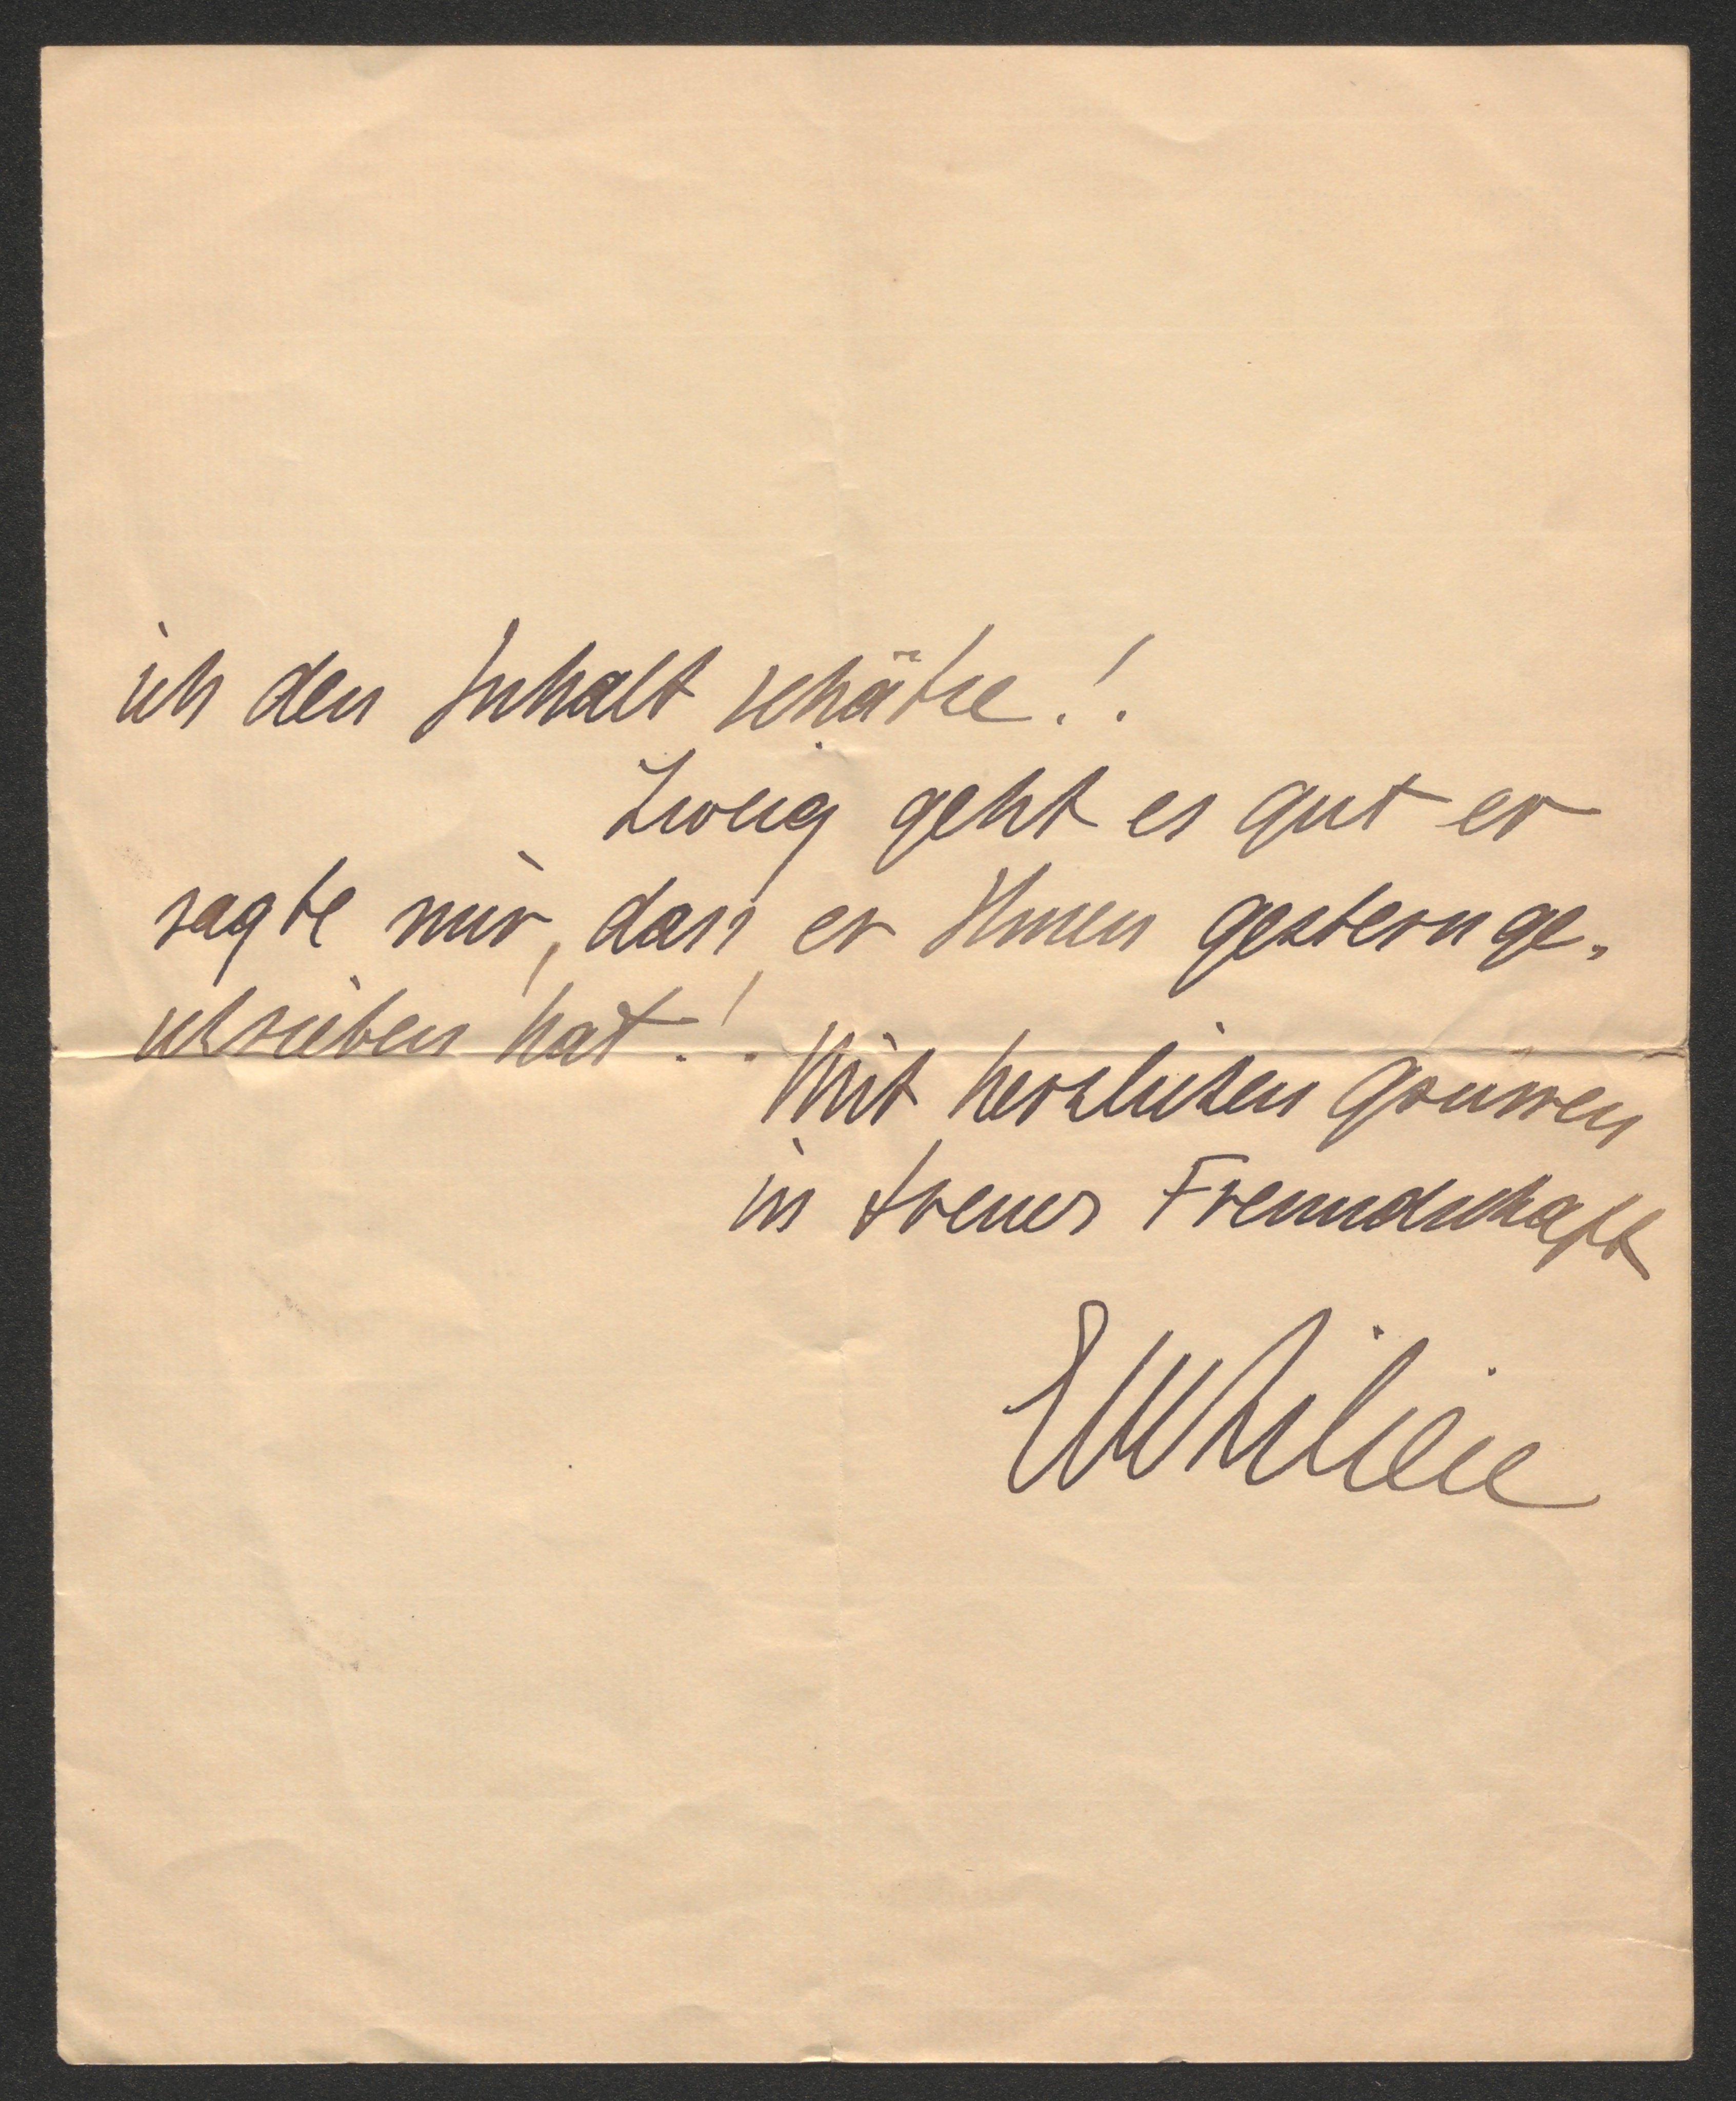 ich den Inhalt schätze!.
Zweig geht es gut er
sagte mir, dass er Ihnen gestern ge-
schrieben hat!.
Mit herzlichen Grüssen
in treuer Freundschaft
EMLilien